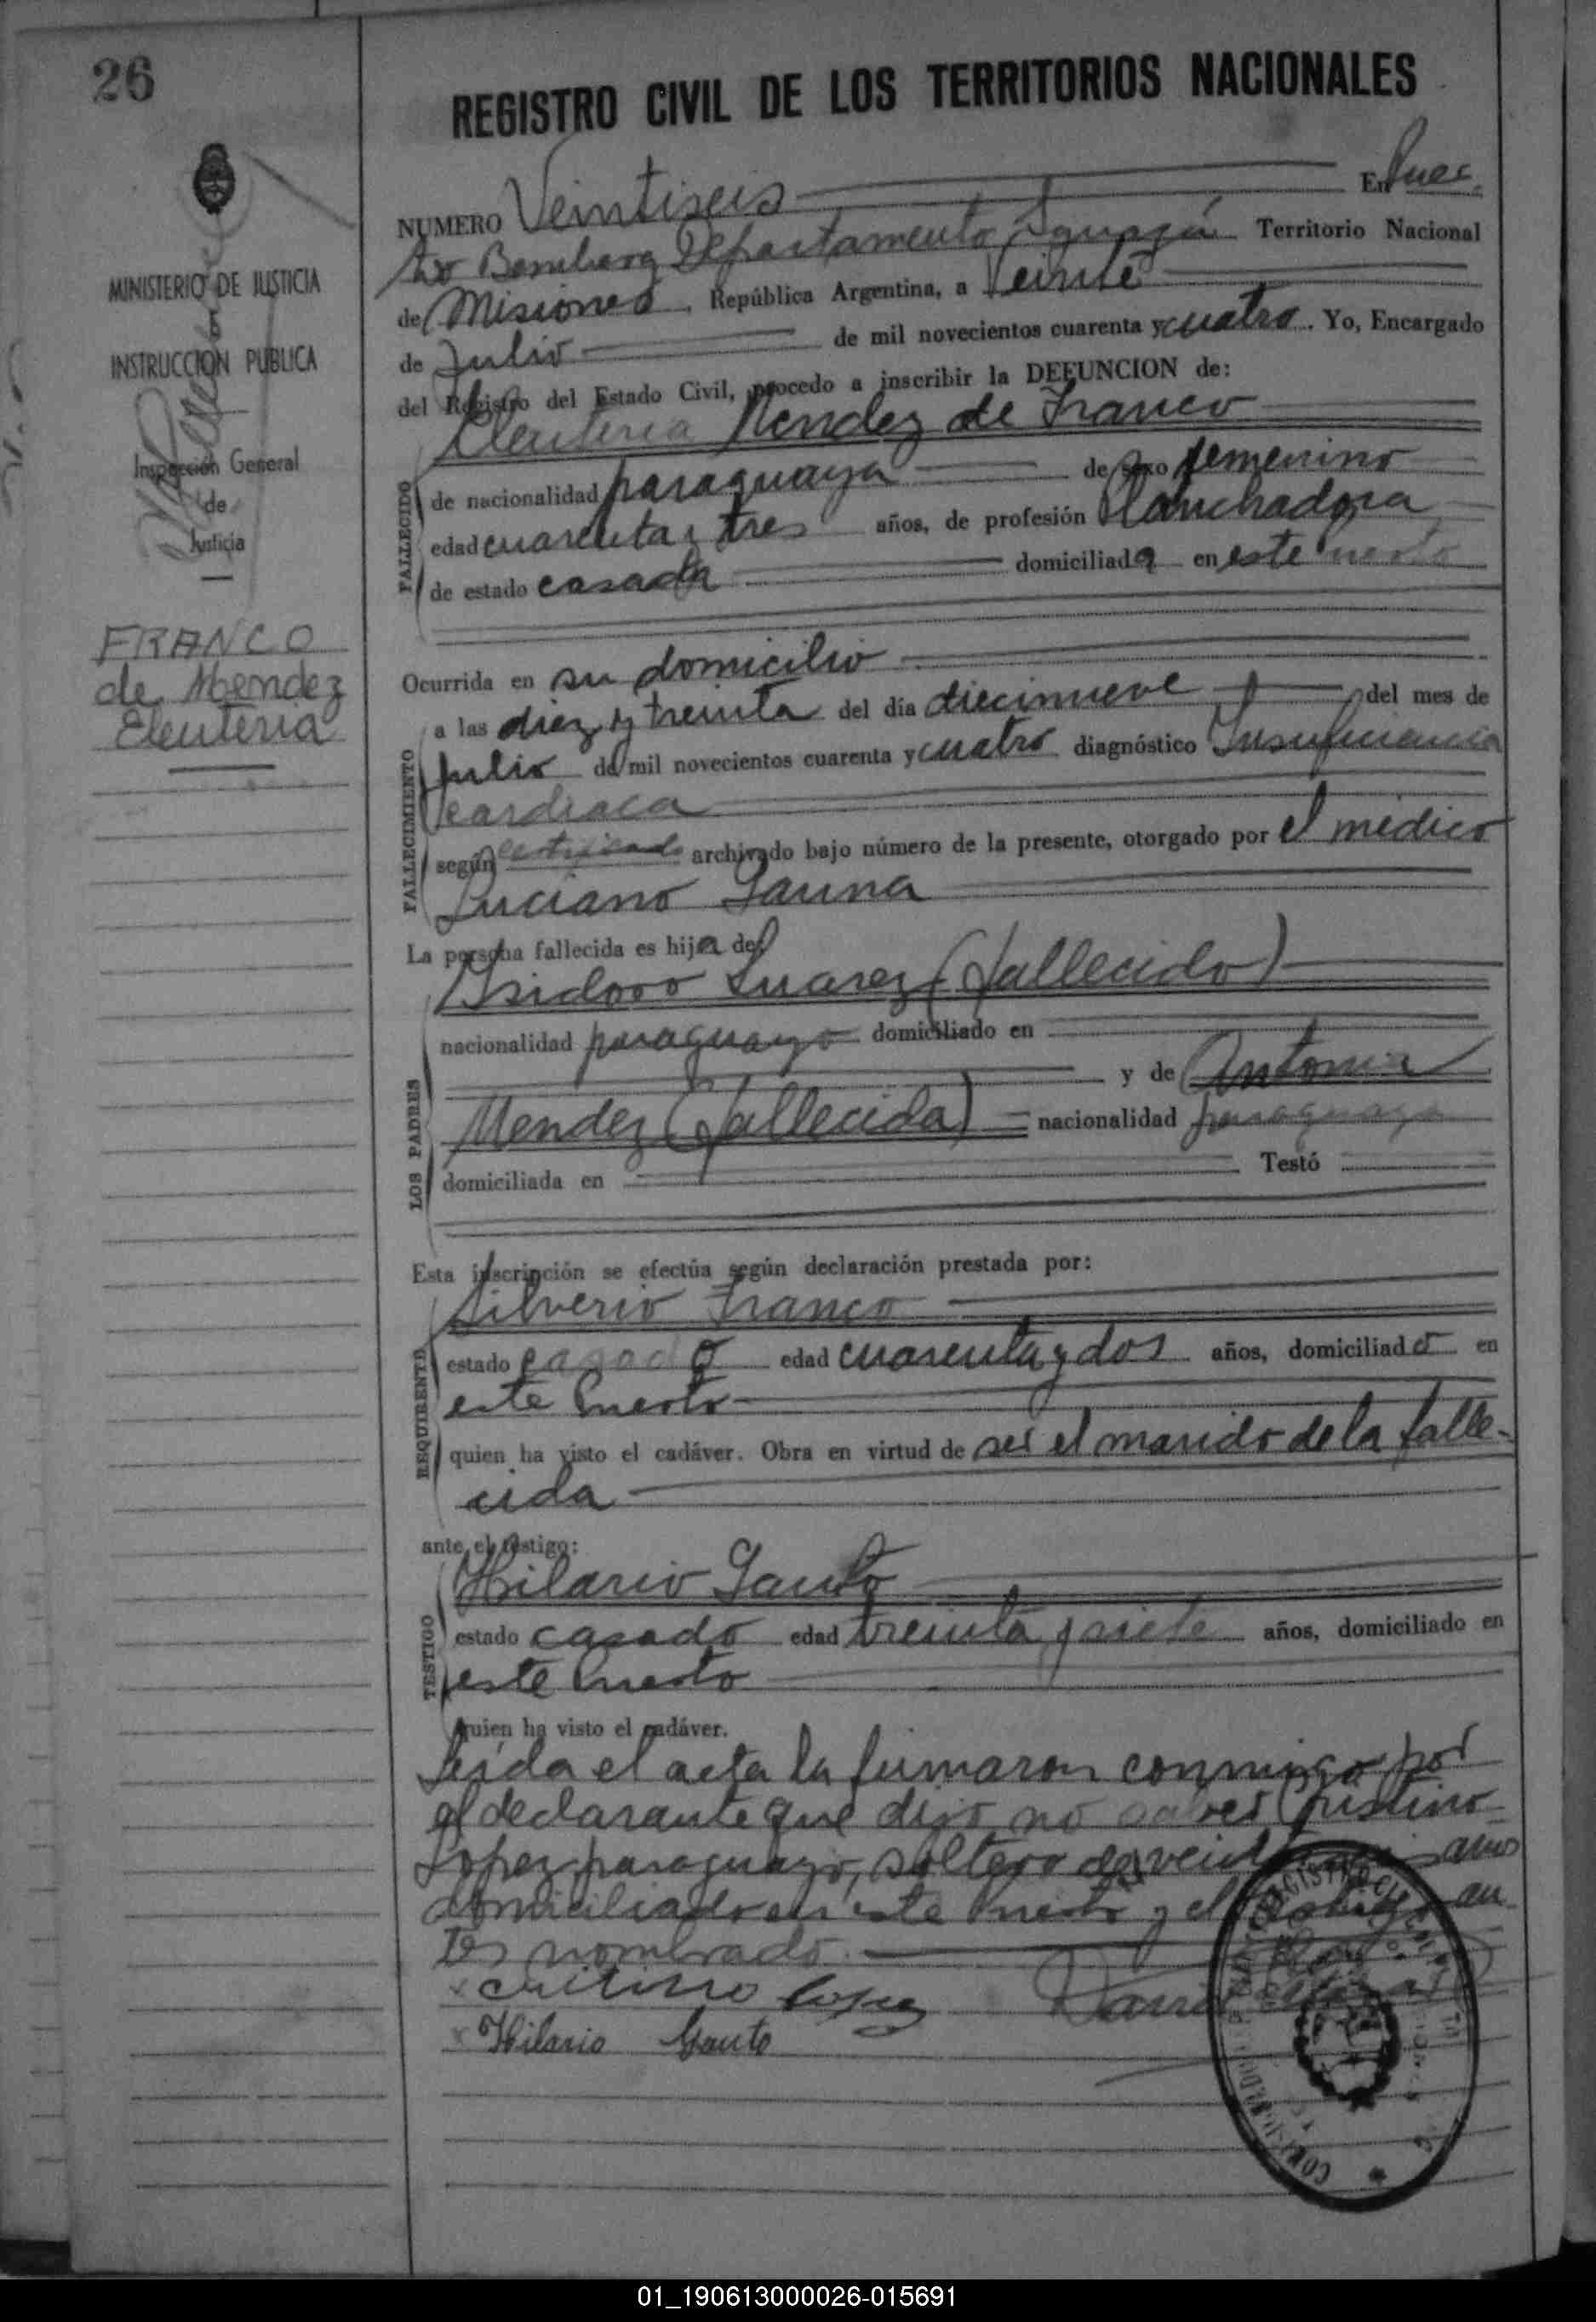 26
REGISTRO CIVIL DE LOS TERRITORIOS NACIONALES
MINISTERIO DE JUSTICIA
INSTRUCCION PUBLICA
Inspección General
de
Justicia
FRANCO
de Mendez
Eleuteria
NUMERO Veintiseis En Puer
to Bemberg Departamento Iguazú Territorio Nacional
de Misiones, República Argentina, a Veinte
de Julio de mil novecientos cuarenta y cuatro. Yo, Encargado
del Registro del Estado Civil, procedo a inscribir la DEFUNCION de:
Eleuteria Mendez de Franco
FALLECIDO
de nacionalidad paraguaya de sexo femenino
edad cuarenta y tres años, de profesión Planchadora
de estado casada domiciliada en este Puerto
Ocurrida en su domicilio
FALLECIMIENTO
a las diez y treinta del día diecinueve del mes de
Julio de mil novecientos cuarenta y cuatro diagnóstico Insuficiencia
cardiaca
según certificado archivado bajo número de la presente, otorgado por el médico
Luciano Gauna
La persona fallecida es hija de
LOS PADRES
Isidoro Suarez (fallecido)
nacionalidad paraguayo domiciliado en
y de Antonia
Mendez (fallecida) nacionalidad paraguaya
domiciliada en Testó
Esta inscripción se efectúa según declaración prestada por:
REQUIRENTE
Silverio Franco
estado casado edad cuarenta y dos años, domiciliado en
este Puerto
quien ha visto el cadáver. Obra en virtud de ser el marido de la falle-
cida
ante el testigo:
TESTIGO
Hilario Gauto
estado casado edad treinta y siete años, domiciliado en
este Puerto
quien ha visto el cadáver.
Leída el acta la firmaron conmigo por
el declarante que dijo no saber
Lopez paraguayo, soltero de años
domiciliado en este Puerto y el testigo an
tes nombrado.
Lopez
Hilario Gauto
01_190613000026-015691